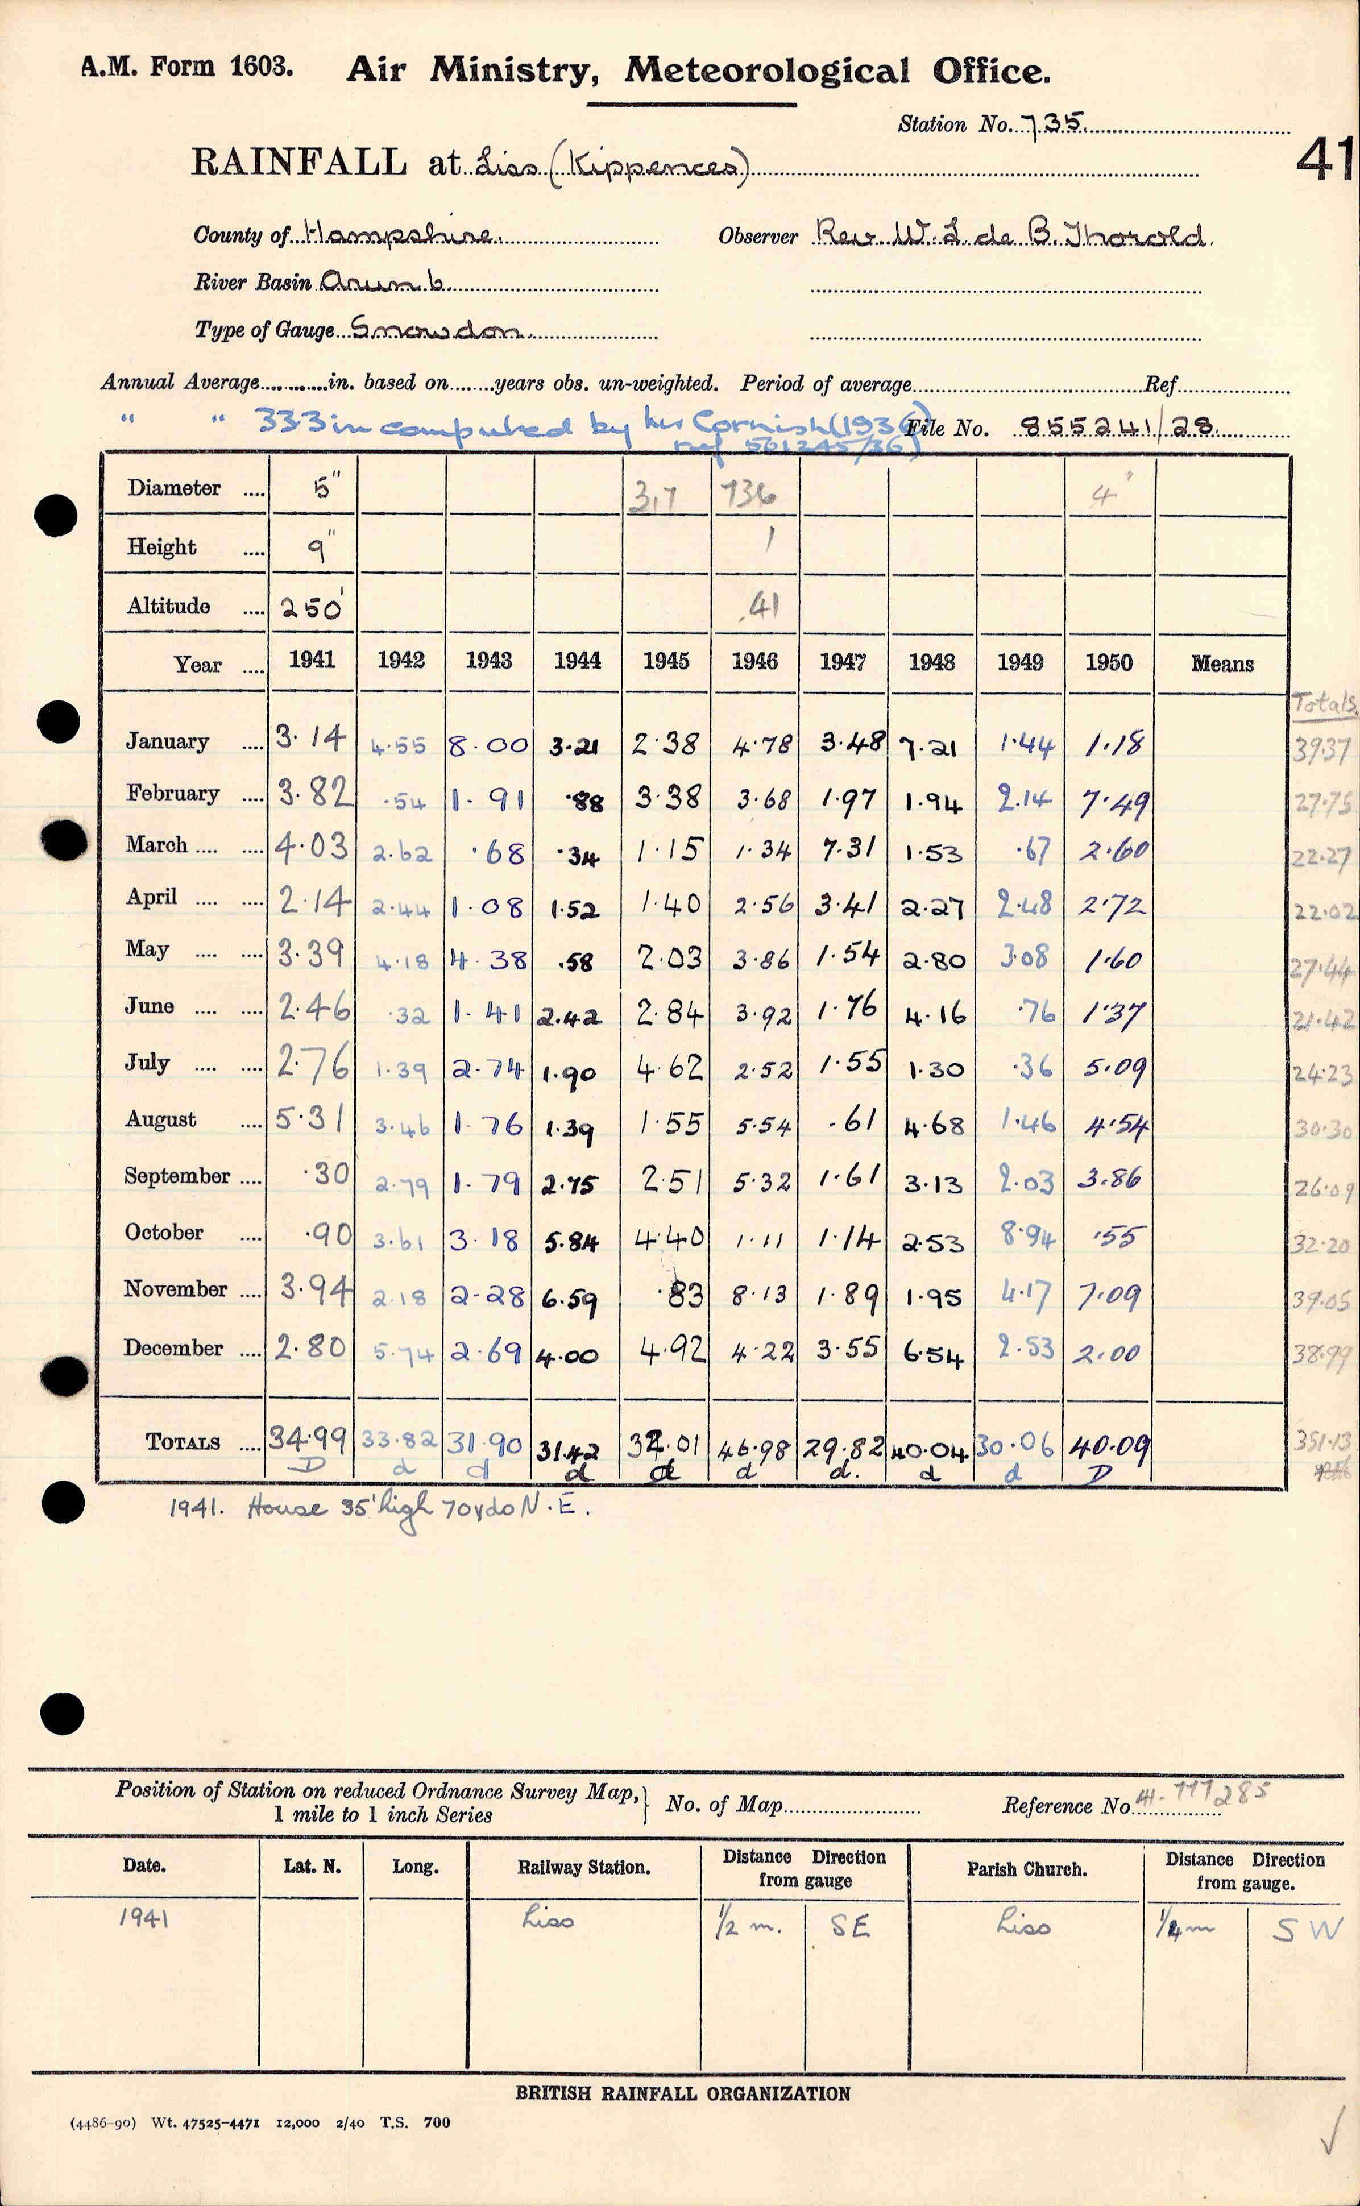 A.M. Form 1603. Air Ministry, Meteorological Office.
Station No. 735.
41
RAINFALL at Liss (Kippences)
County of Hampshire. Observer Rev W. L. de B. Thorold.
River Basin Arun b
Type of Gauge Snowdon.
Annual Average in. based on years obs. un-weighted. Period of average Ref
" " 33.3 in computed by Mr Cornish (1936) File No. 855241/28
ref 561245/36)
Diameter 5" 3.7 736 4"
Height 9" 1
Altitude 250' .41
Year 1941 1942 1943 1944 1945 1946 1947 1948 1949 1950 Means
Totals
January 3.14 4.55 8.00 3.21 2.38 4.78 3.48 7.21 1.44 1.18 39.37
February 3.82 .54 1.91 .88 3.38 3.68 1.97 1.94 2.14 7.49 27.75
March 4.03 2.62 .68 .34 1.15 1.34 7.31 1.53 .67 2.60 22.27
April 2.14 2.44 1.08 1.52 1.40 2.56 3.41 2.27 2.48 2.72 22.02
May 3.39 4.18 4.38 .58 2.03 3.86 1.54 2.80 3.08 1.60 27.44
June 2.46 .32 1.41 2.42 2.84 3.92 1.76 4.16 .76 1.37 21.42
July 2.76 1.39 2.74 1.90 4.62 2.52 1.55 1.30 .36 5.09 24.23
August 5.31 3.46 1.76 1.39 1.55 5.54 .61 4.68 1.46 4.54 30.30
September .30 2.79 1.79 2.75 2.51 5.32 1.61 3.13 2.03 3.86 26.09
October .90 3.61 3.18 5.84 4.40 1.11 1.14 2.53 8.94 .55 32.20
November 3.94 2.18 2.28 6.59 .83 8.13 1.89 1.95 4.17 7.09 39.05
December 2.80 5.74 2.69 4.00 4.92 4.22 3.55 6.54 2.53 2.00 38.99
TOTALS 34.99 33.82 31.90 31.42 32.01 46.98 29.82 40.04 30.06 40.09 351.13
D d d d d d d. d d D
1941. House 35' high 70 yds N.E.
Position of Station on reduced Ordnance Survey Map,
1 mile to 1 inch Series
No. of Map Reference No 41.777285
Date. Lat. N. Long. Railway Station. Distance Direction from gauge Parish Church. Distance Direction from gauge.
1941 Liss 1/2 m. SE Liss 1/4 m SW
BRITISH RAINFALL ORGANIZATION
(4486-90) Wt. 47525-4471 12,000 2/40 T.S. 700